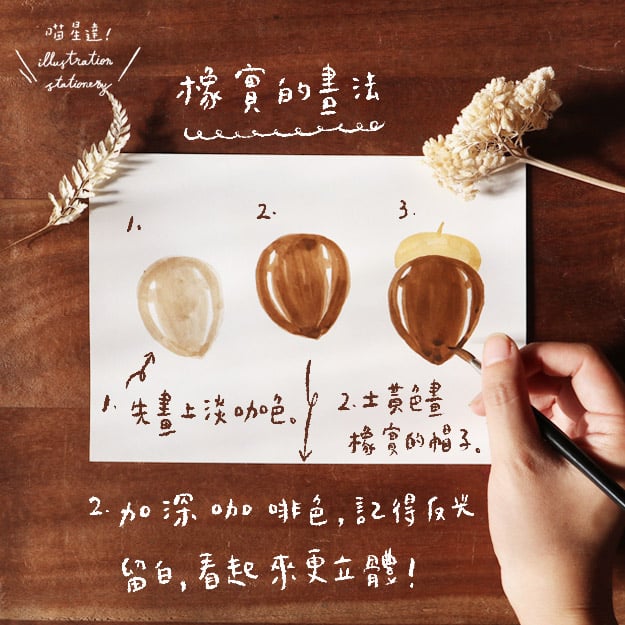 喵星達!
illustration
stationery
橡實的畫法
1.
2.
3.
1. 先畫上淡咖色。
2. 土黃色畫
橡實的帽子。
2. 加深咖啡色,記得反光
留白,看起來更立體!